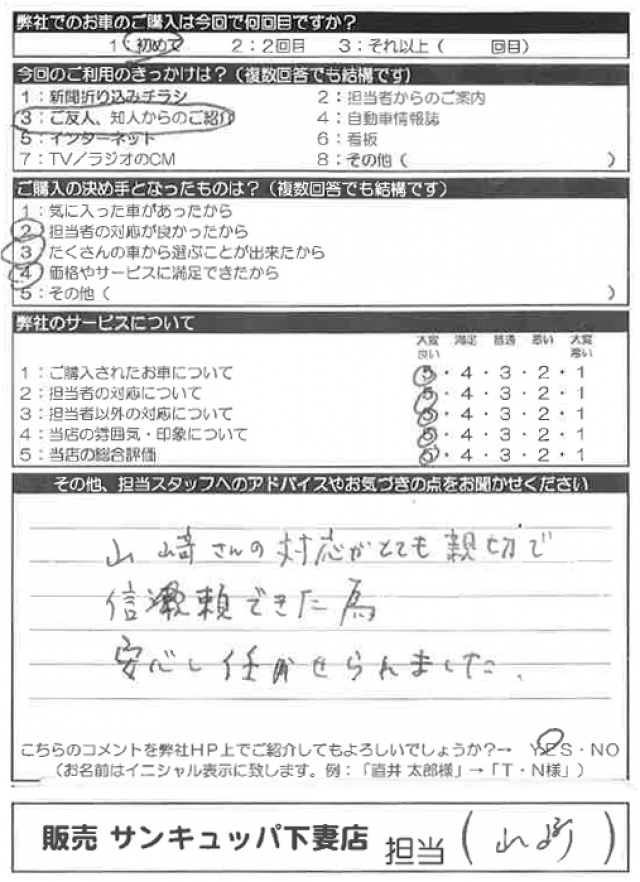 弊社でのお車のご購入は今回で何回目ですか?
1:初めて 2:2回目 3:それ以上( 回目)
今回のご利用のきっかけは?(複数回答でも結構です)
1:新聞折り込みチラシ 2:担当者からのご案内
3:ご友人、知人からのご紹介 4:自動車情報誌
5:インターネット 6:看板
7:TV/ラジオのCM 8:その他( )
ご購入の決め手となったものは?(複数回答でも結構です)
1:気に入った車があったから
2:担当者の対応が良かったから
3:たくさんの車から選ぶことが出来たから
4:価格やサービスに満足できたから
5:その他( )
弊社のサービスについて
大変良い 満足 普通 悪い 大変悪い
1:ご購入されたお車について 5・4・3・2・1
2:担当者の対応について 5・4・3・2・1
3:担当者以外の対応について 5・4・3・2・1
4:当店の雰囲気・印象について 5・4・3・2・1
5:当店の総合評価 5・4・3・2・1
その他、担当スタッフへのアドバイスやお気づきの点をお聞かせください
山崎さんの対応がとても親切で
信頼できた為
安心し任かせられました.
こちらのコメントを弊社HP上でご紹介してもよろしいでしょうか?→ YES・NO
(お名前はイニシャル表示に致します。例:「直井 太郎様」→「T・N様」)
販売 サンキュッパ下妻店 担当(山崎)